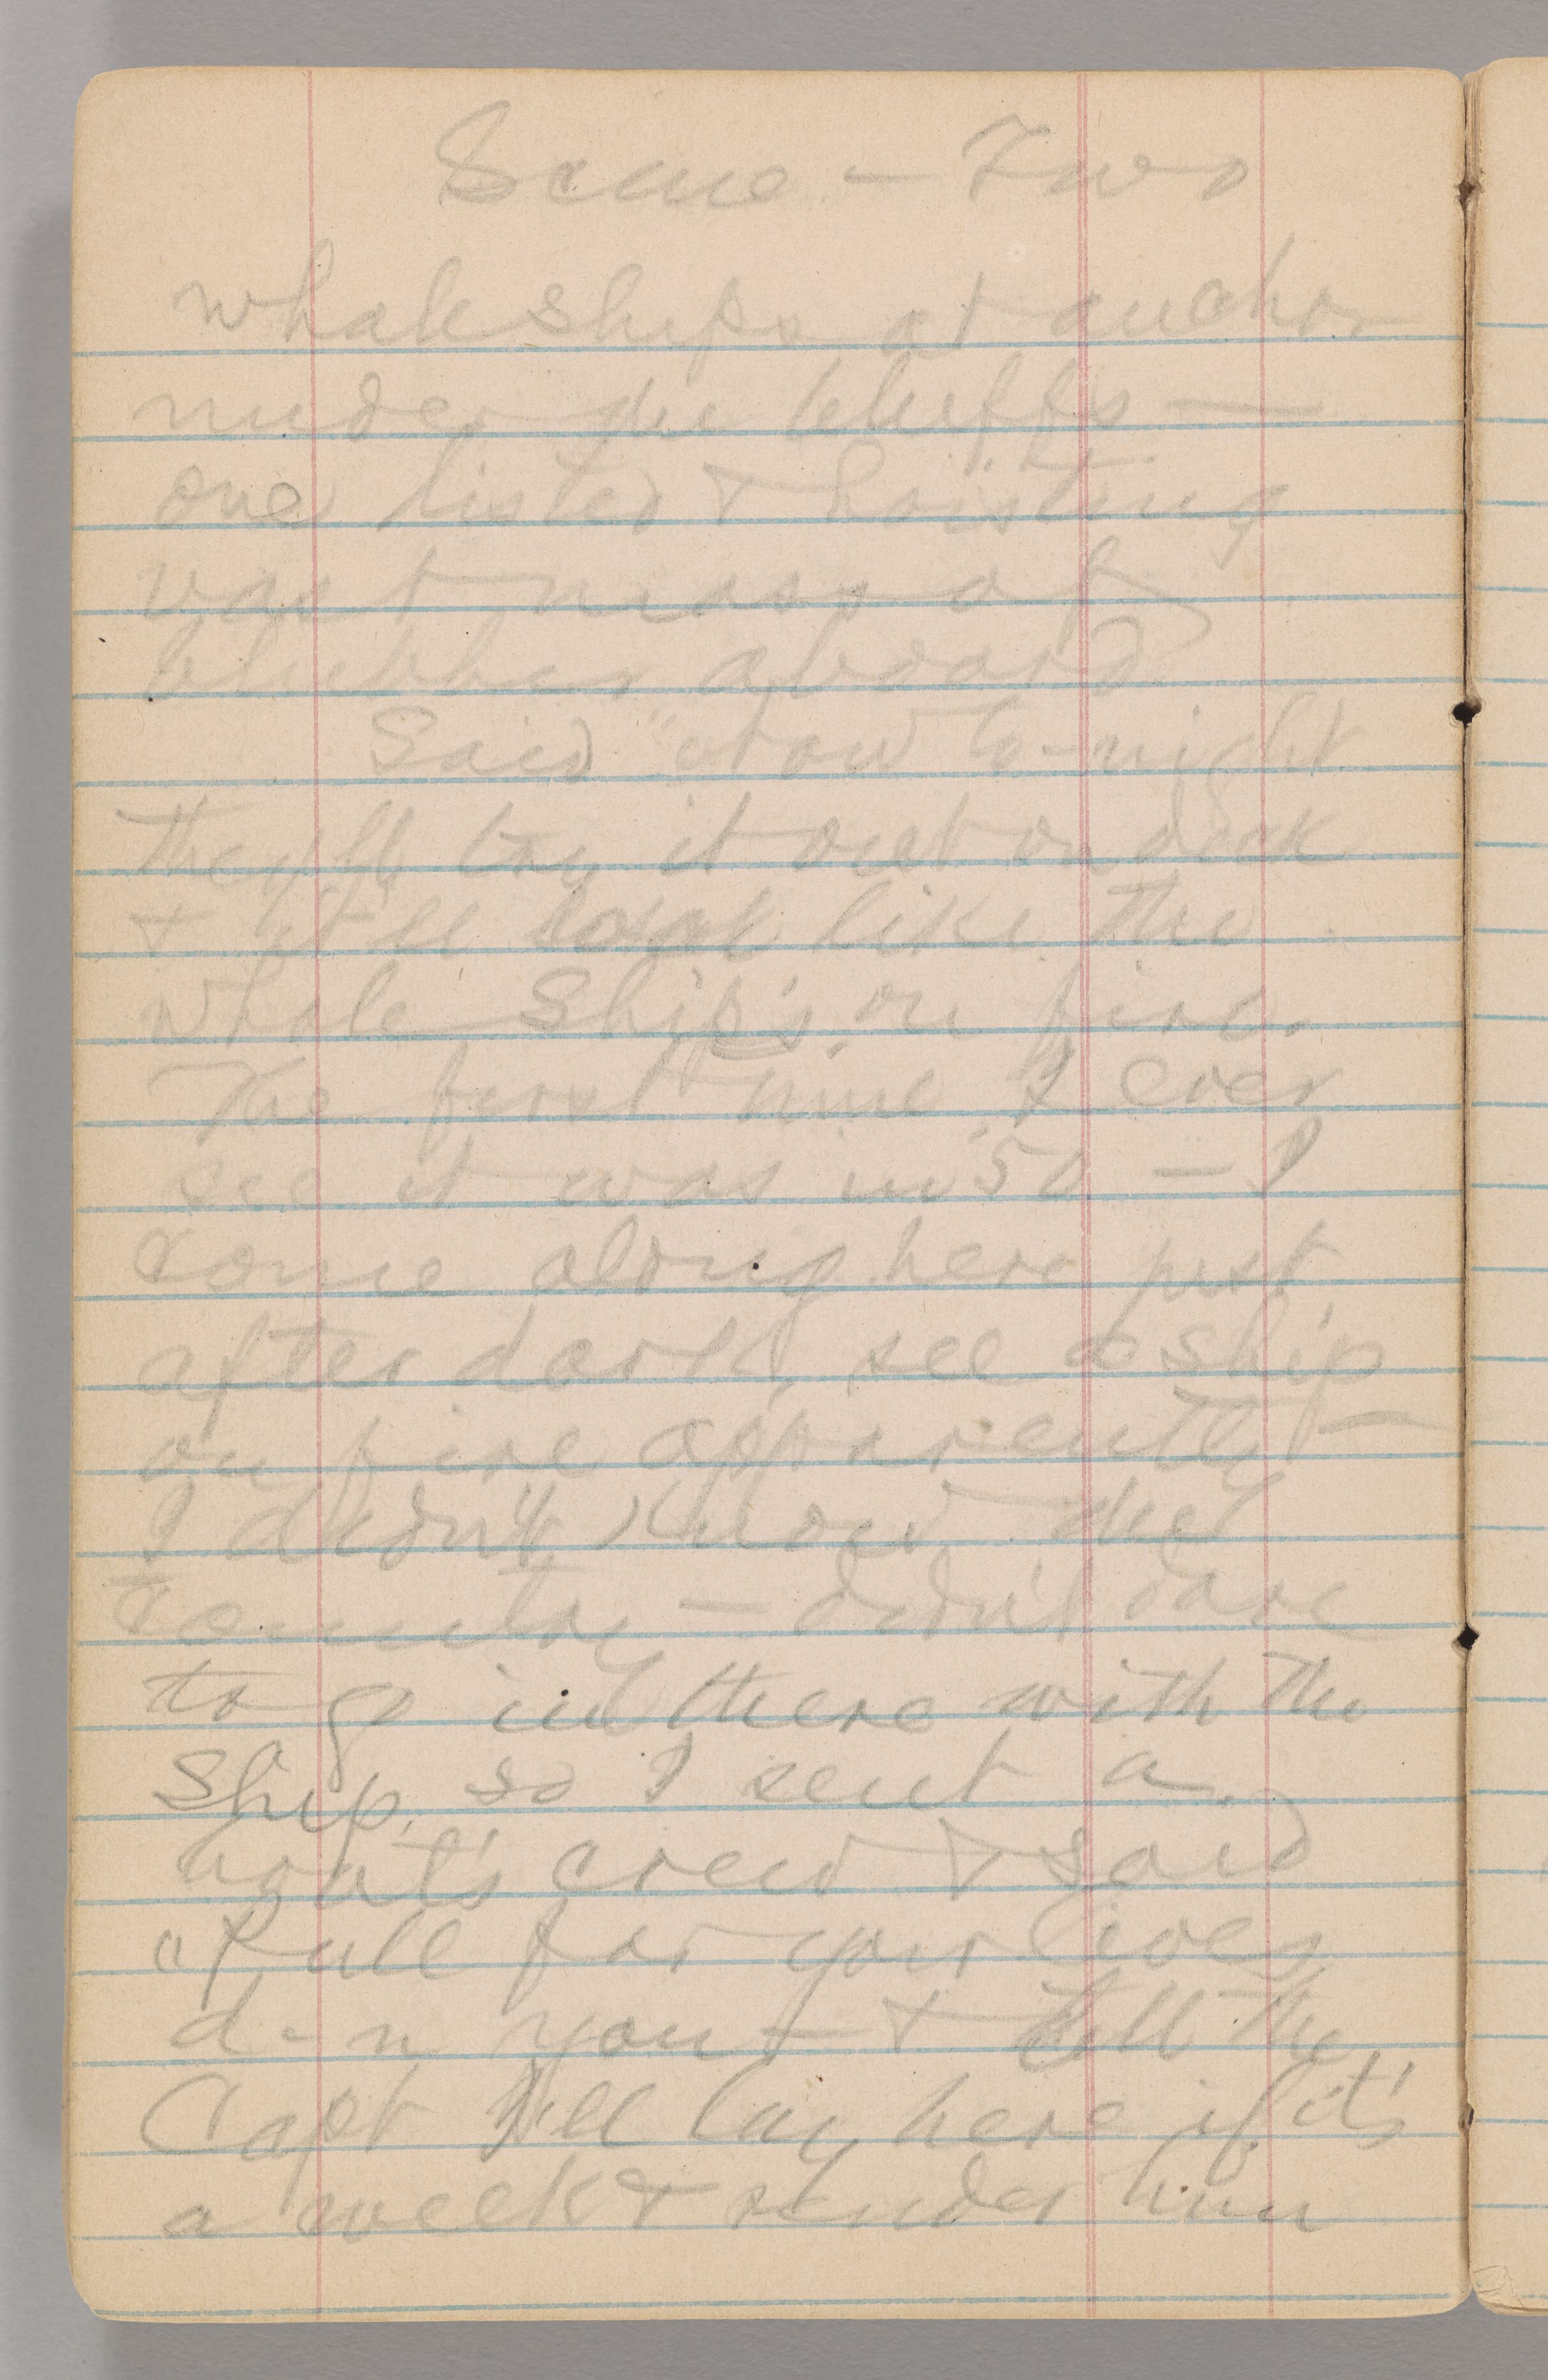 Scene — Two
whaleships at anchor
under the bluffs —
one listed & hoisting
vast mass of
blubber aboard
Said "Now to-night
they'll try it out on deck
& it'll look like the
whole ship's on fire.
The first time I ever
see it was in '50 — I
come along here just
after dark, see a ship
on fire apparently —
I didn't know the
country — didn't dare
to go in there with the
ship, so I sent a
boat's crew & said
"Pull for your lives
d-n you — & tell the
Capt I'll lay here if it's
a week & render him